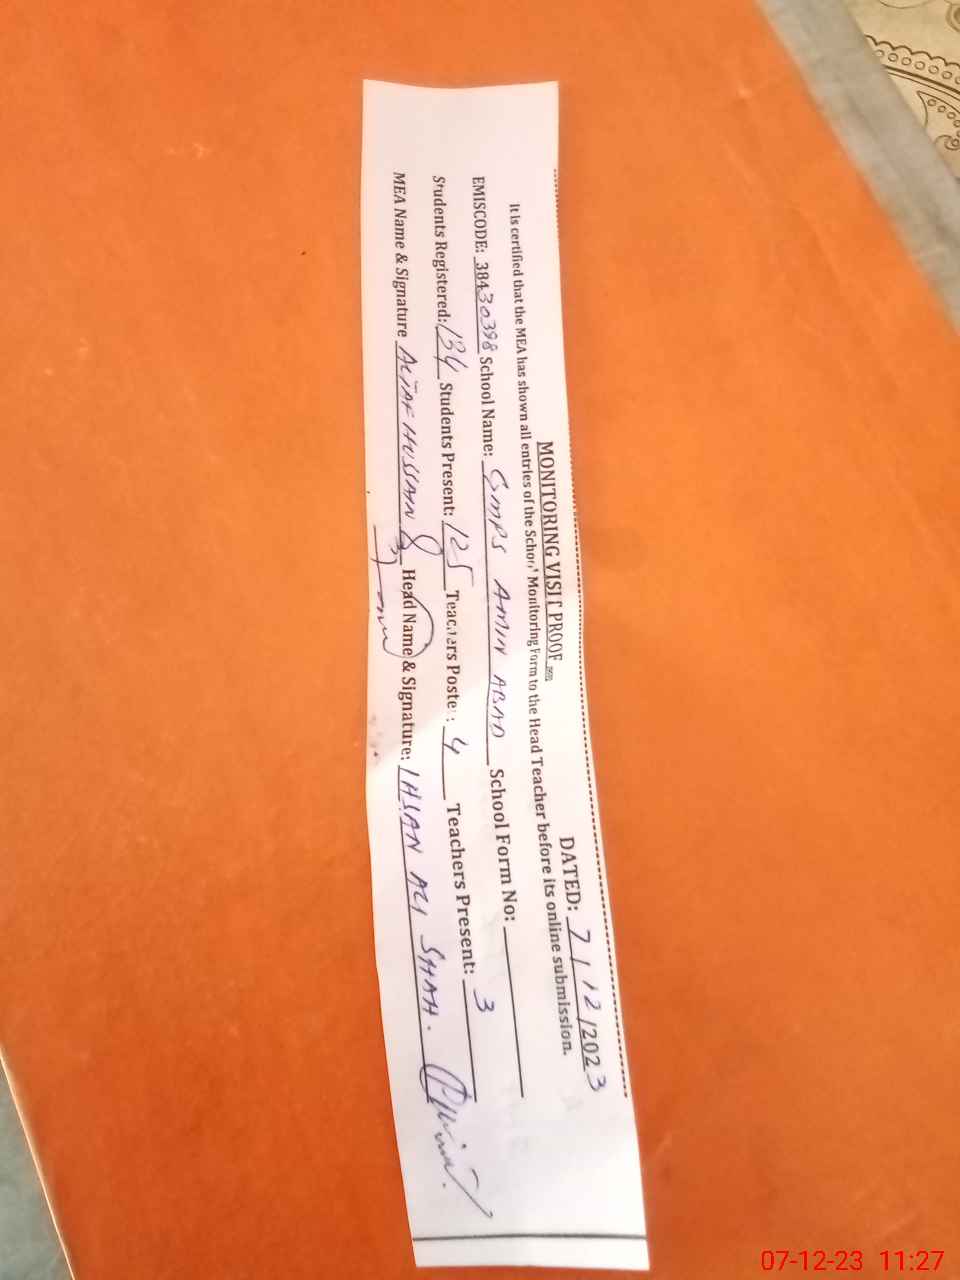 MONITORING VISIT PROOF
DATED: 7/12/2023
It is certified that the MEA has shown all entries of the School Monitoring Form to the Head Teacher before its online submission.
EMISCODE: 38430398 School Name: GMPS AMIN ABAD School Form No:
Students Registered: 134 Students Present: 125 Teachers Posted: 4 Teachers Present: 3
MEA Name & Signature ALTAF HUSSAIN Head Name & Signature: IHSAN ALI SHAH.
07-12-23 11:27